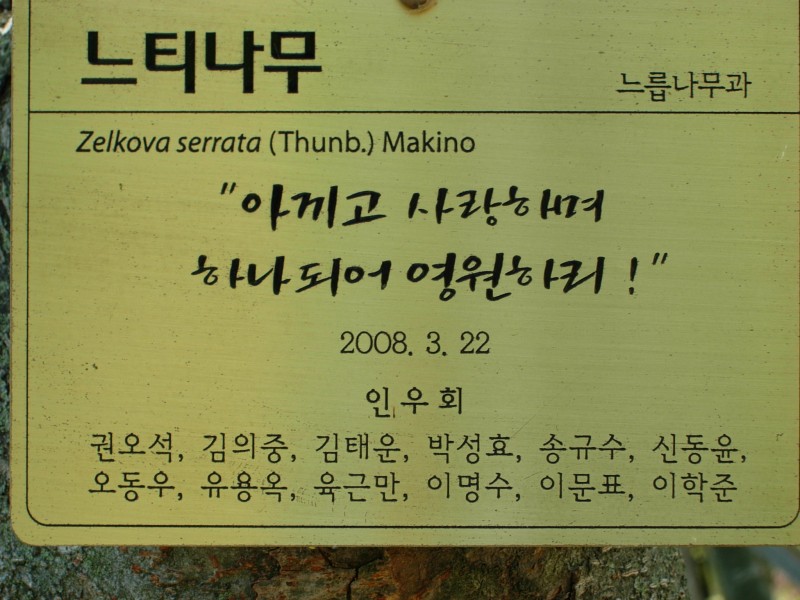 느티나무
느릅나무과
Zelkova serrata (Thunb.) Makino
"아끼고 사랑하며
하나되어 영원하리 !"
2008. 3. 22
인우회
권오석, 김의중, 김태운, 박성효, 송규수, 신동윤,
오동우, 유용옥, 육근만, 이명수, 이문표, 이학준